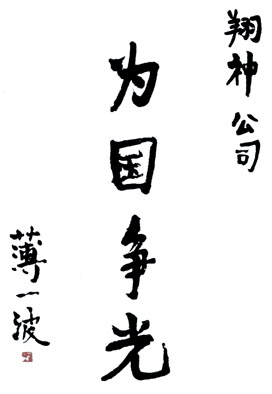 翔神公司
为国争光
薄一波